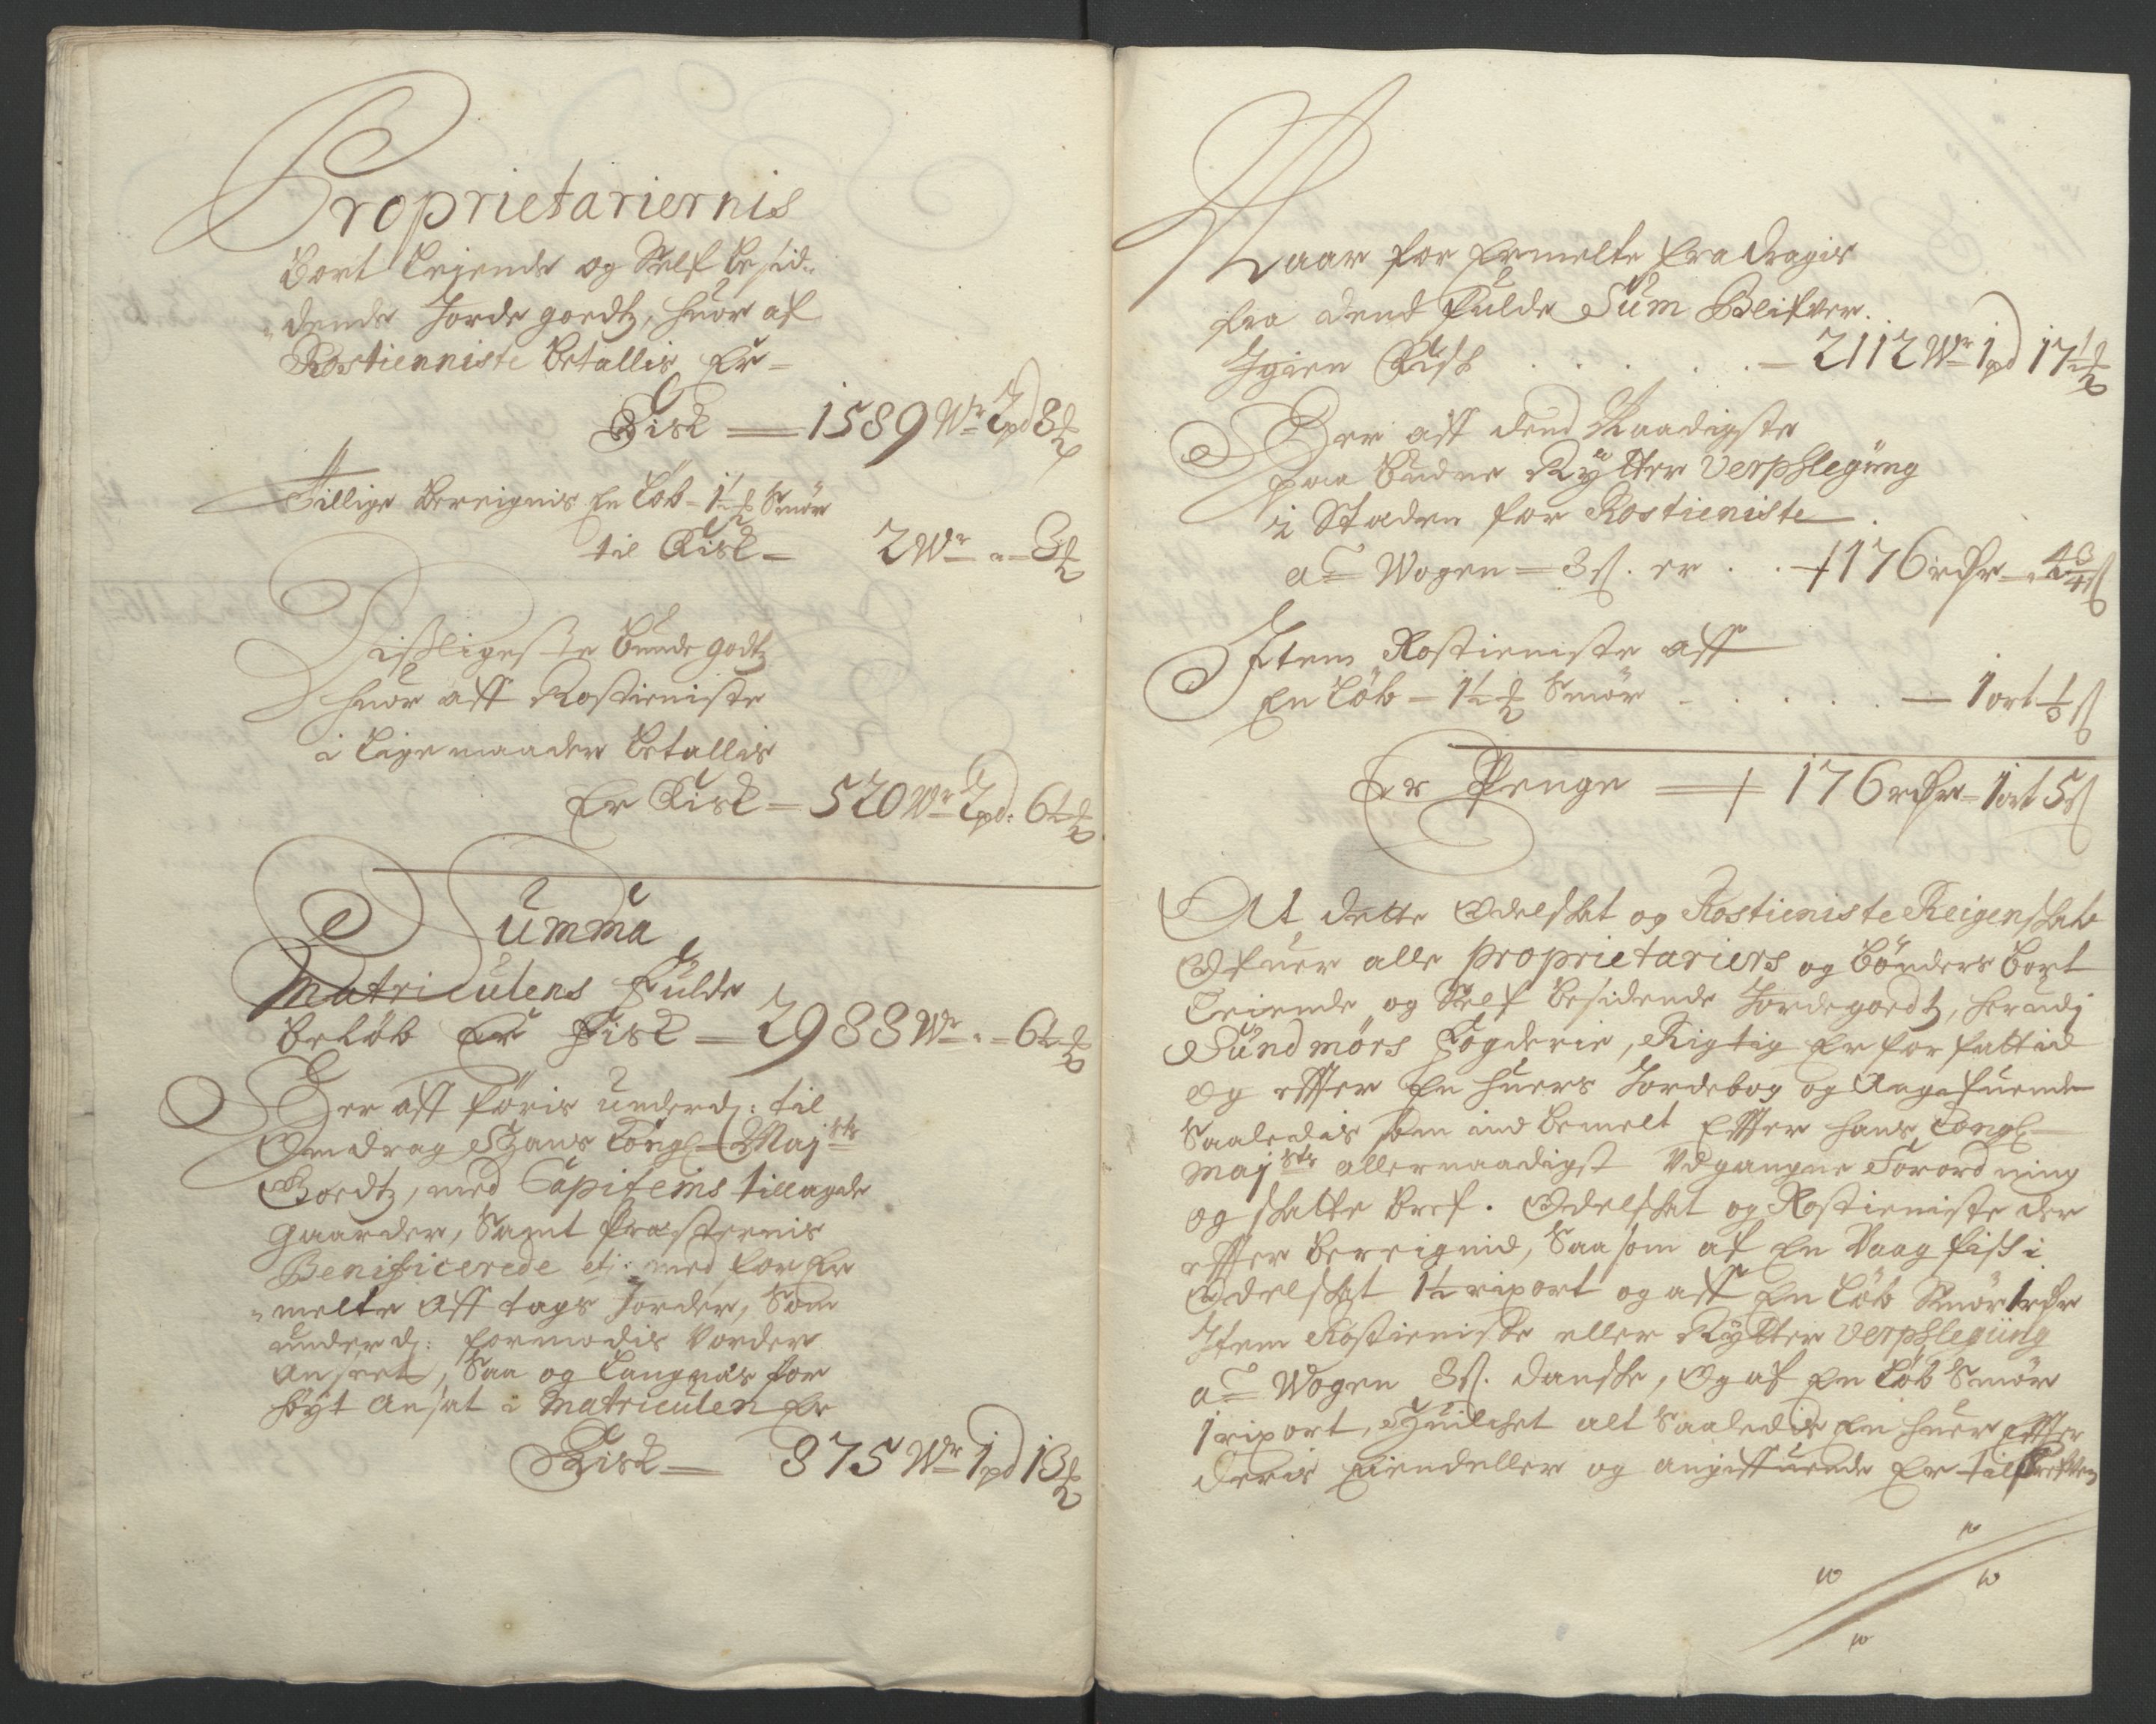 Proprietariernis
bort leiende og Self besid-
dende Jorde goedtz, huor af
Rostienniste betallis Er -
Fisk — 1589 Wr 2 pd 8 ℔
Tillige bereignis En Løb - 1½ ℔ Smør
til Fisk — 2 Wr - „ - 3 ℔
Disligeste bunde godtz
huor aff Rostieniste
i lige maader betallis
Er Fisk — 520 Wr 2 pd: 6½ ℔
Summa
Matriculens Fulde
beløb Er Fisk — 2988 Wr - „ - 6½ ℔
Her aff føris underd: til
Omdrag Hans Kongl: Majsts
Goedtz, med Capiteins tillagde
gaarder, Samt Præsternis
Benificerede etc: med for Er
melte Aff tags Jorder, Som
underd: formodis vorder
Anseet, Saa og
høyt Ansat i Matriculen Er
Fisk — 875 Wr 1 pd 13 ℔
Naar for Ermelte fradragis
fra dend fulde Sum Blifver
Igien Fisk . . . . . — 2112 Wr 1 pd 17½ ℔
Her aff dend Naadigste
paa budne Rytter Verpflegung
i Staden for Rostieniste
a Wogen — 8 s. er . . — 176 rdr
Item Rostieniste aff
En Løb - 1½ ℔ Smør . . . . . — 1 ort
Er Penge — 176 rdr - 1 ort 5 s
At dette Odelskat og Rostieniste Reigenskab
Ofuer alle proprietariers og bønders bort
leiende og Self besidende Jordegoedtz, herudj
Sundmørs Fogderie, Rigtig Er forfattid
og effter En huers Jordebog og Angifuende
Saaledis som ind bemelt Effter hans Kongl:
Majsts allernaadigst Udgangne Forordning
og skatte bref. Odelskat og Rostieniste der
effter bereignid, Saasom af En Vaag fisk i
Odelskat 1½ rixort og aff En Løb Smør 1 rdr
Item Rostieniste eller Rytter Verpflegung
a Wogen 8 s. danske, Og af En Løb Smør
1 rixort, Huilchet alt Saaledis En huer Effter
deris Eiendeller og angiffuende Er tilskrefven